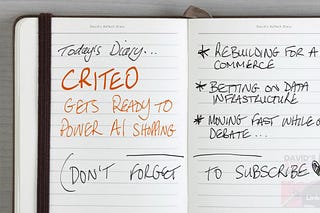 David's AdTech Diary
Today's Diary...
CRITEO
GETS READY TO
POWER AI SHOPPING
(DON'T FORGET
* REBUILDING FOR A
COMMERCE
* BETTING ON DATA
INFRASTRUCTURE
* MOVING FAST WHILE O
DEBATE...
TO SUBSCRIBE
DAVID'S
Link